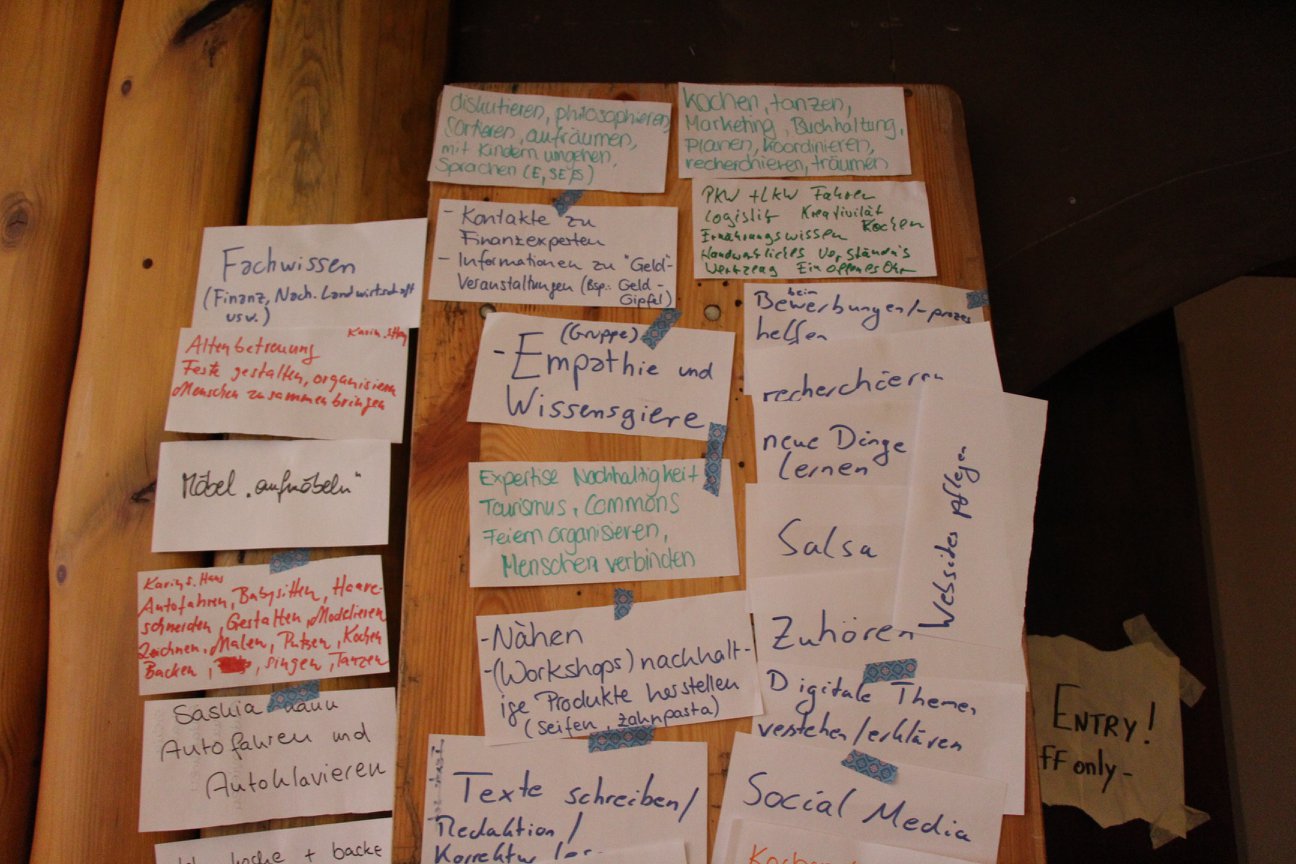 Fachwissen
(Finanz, Nach. Landwirtschaft
usw.)
Altenbetreuung
Feste gestalten, organisieren
Menschen zusammenbringen
Möbel "aufmöbeln"
Autofahren, Babysitten, Haare-
schneiden, Gestalten, Modelieren
Zeichnen, Malen, Putzen, Kochen
Backen, singen, Tanzen
Saskia kann
Autofahren und
Autoklavieren
koche + backe
diskutieren, philosophieren,
sortieren, aufräumen,
mit Kindern umgehen,
Sprachen (E, SE,
- Kontakte zu
Finanzexperten
- Informationen zu "Geld"-
Veranstaltungen (Bsp.: Geld-
Gipfel)
(Gruppe)
- Empathie und
Wissensgiere
Expertise Nachhaltigkeit
Tourismus, Commons
Feiern organisieren,
Menschen verbinden
- Nähen
- (Workshops) nachhalt-
ige Produkte herstellen
(Seifen, Zahnpasta)
Texte schreiben/
Redaktion/
Korrektur
kochen, tanzen,
Marketing, Buchhaltung,
planen, koordinieren,
recherchieren, träumen
PKW + LKW Fahren
Logistik Kreativität
Kochen
Ernährungswissen
Handwerkliches Verständnis
Werkzeug Ein offenes Ohr
beim
Bewerbungen/-prozess
helfen
recherchieren
neue Dinge
lernen
Salsa
Zuhören
Websides pflegen
Digitale Themen
verstehen/erklären
Social Media
Kochen
ENTRY!
ff only-